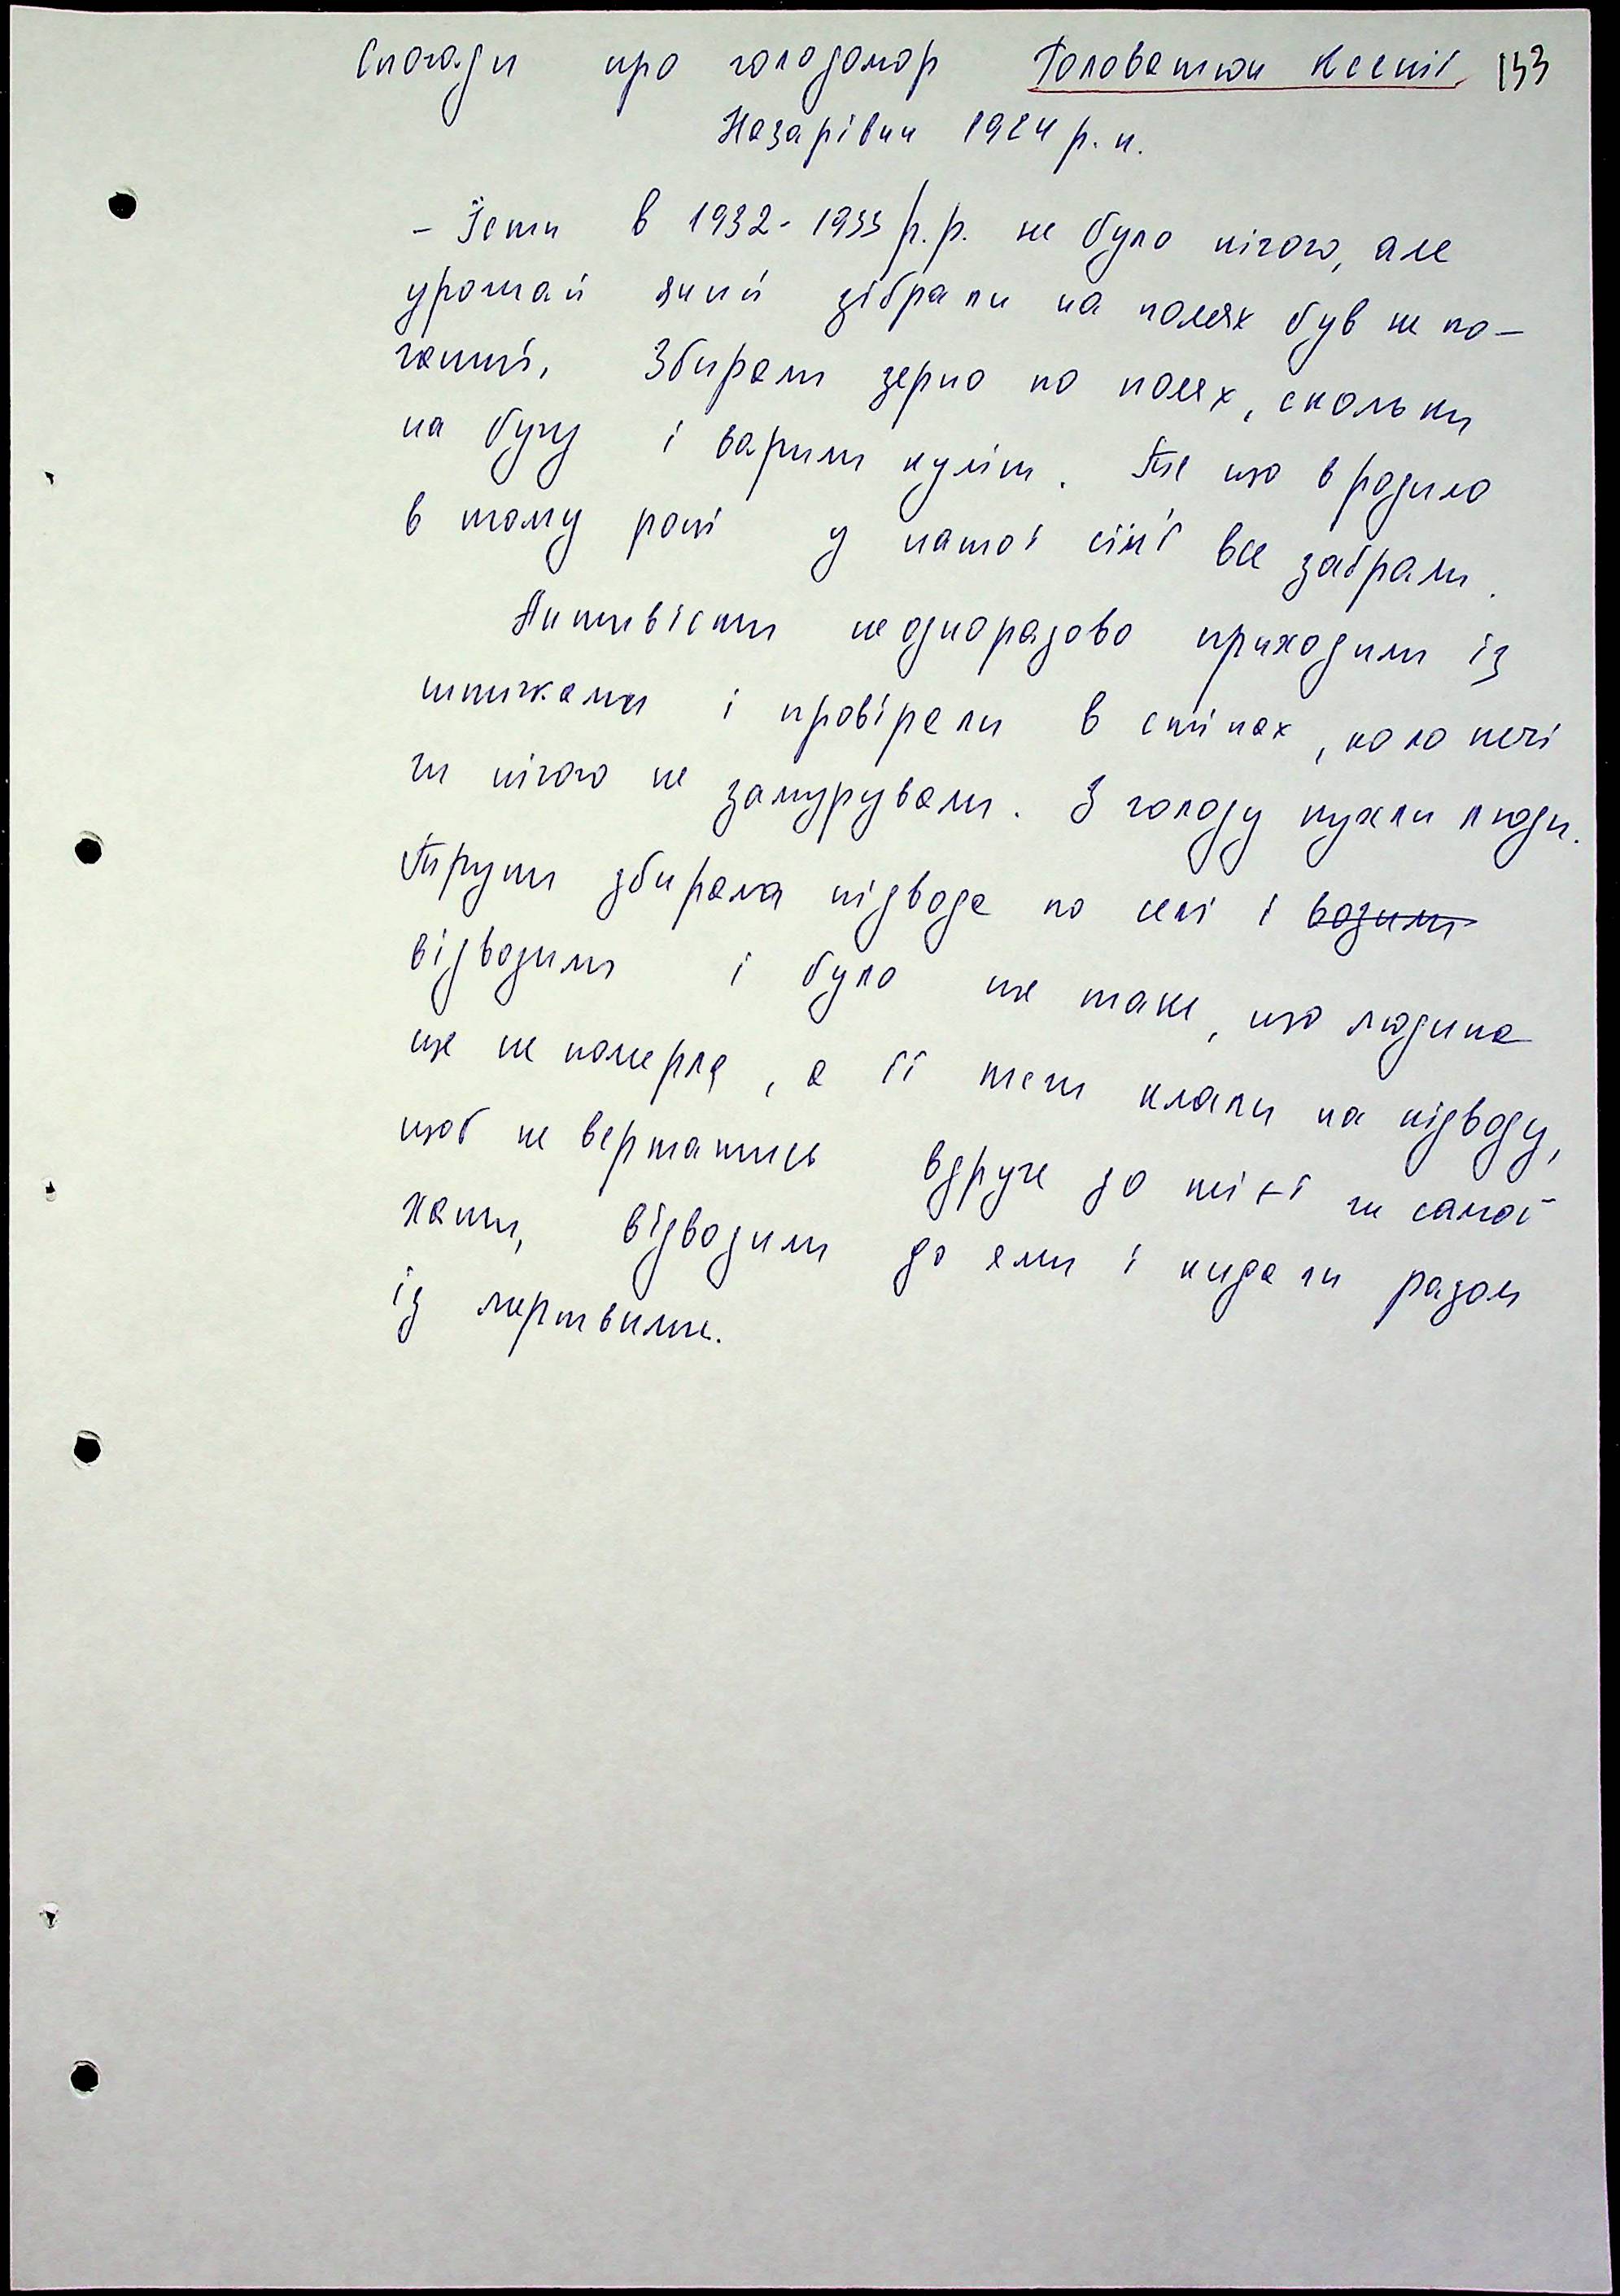 Спогади про голодомор Головатюк Ксенії 133
Назарівни 1924 р. н.
- Їсти в 1932-1933 р.р. не було нічого, але
урожай який зібрали на полях був не по-
ганий, Збирали зерно по полях, скольки
на бугу і варили куліш. Те що вродило
в тому році у нашої сім'ї все забрали.
Активісти неодноразово приходили із
штижками і провіряли в стінах, коло печі
чи нічого не замурували. З голоду пухли люди.
Трупи збирала підвода по селі і возили
відвозили і було ще таке, що людина
ще не померла, а її теж клали на підводу,
щоб не вертатись вдруге до тієї ж самої
хати, відвозили до ями і кидали разом
із мертвими.